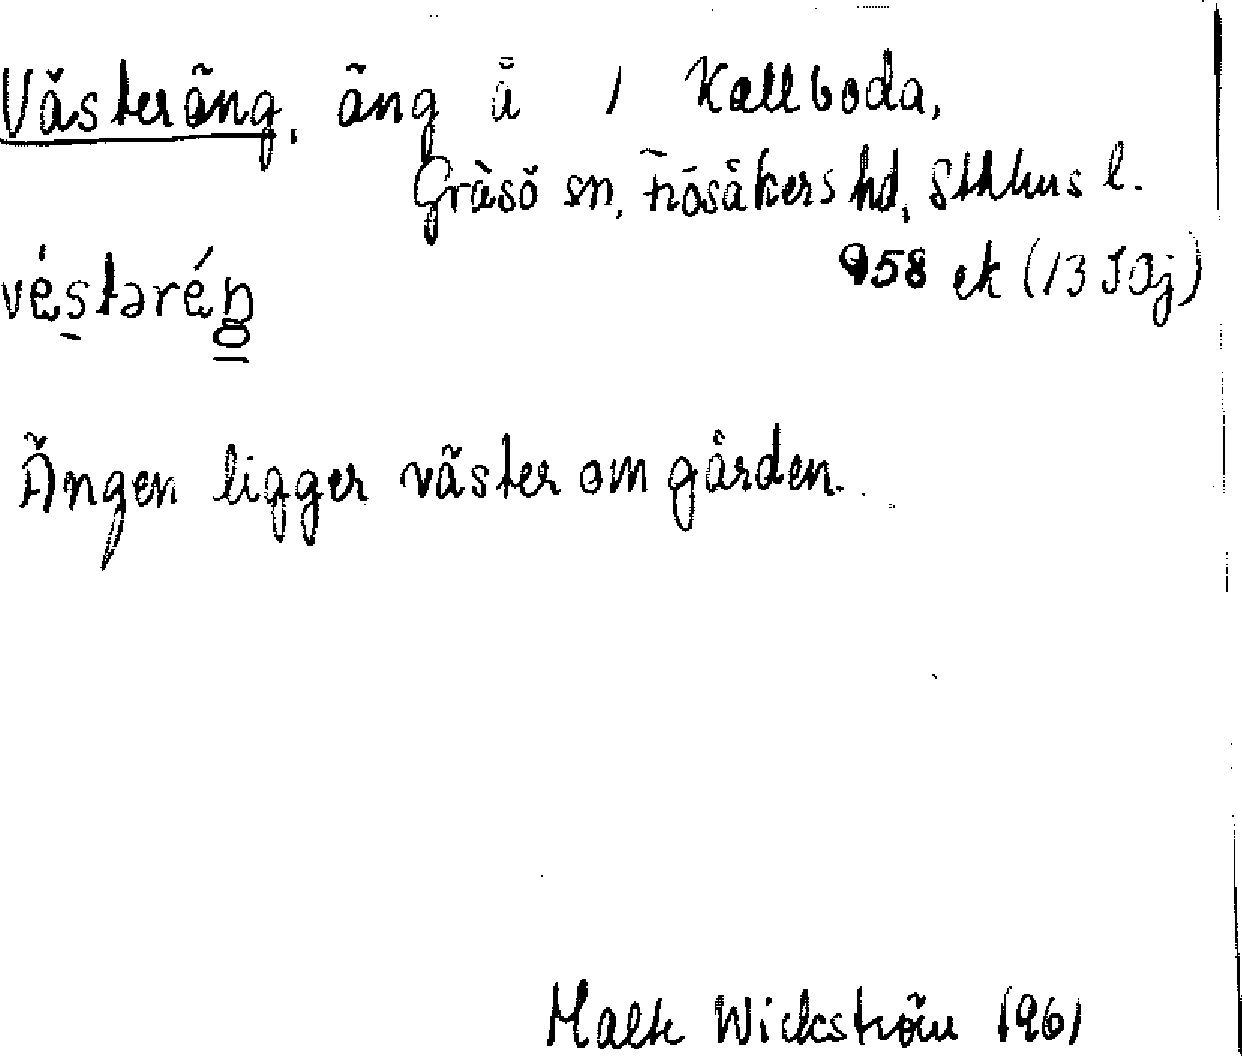 Västeräng, äng å 1 Kallboda,
Gräsö sn, Frösåkers hd, Sthlms l.
958 ek (13 I 0j)
véstəréŋ
Ängen ligger väster om gården.
Malte Wickström 1961